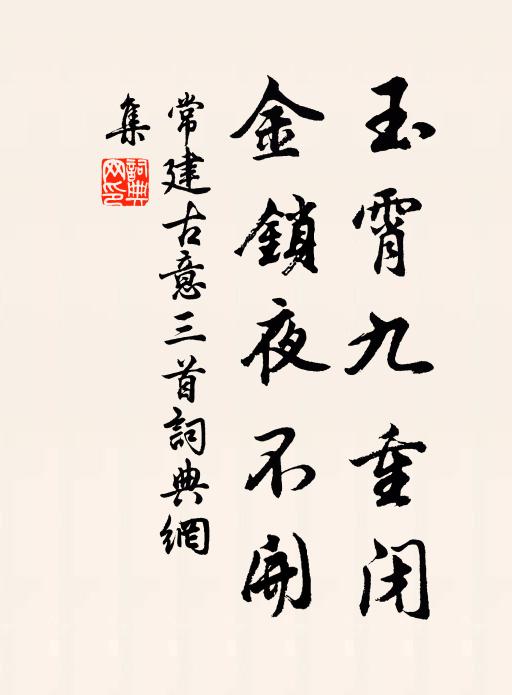 玉霄九重闭
金鎖夜不開
常建古意三首詞典網
集
詞典網印